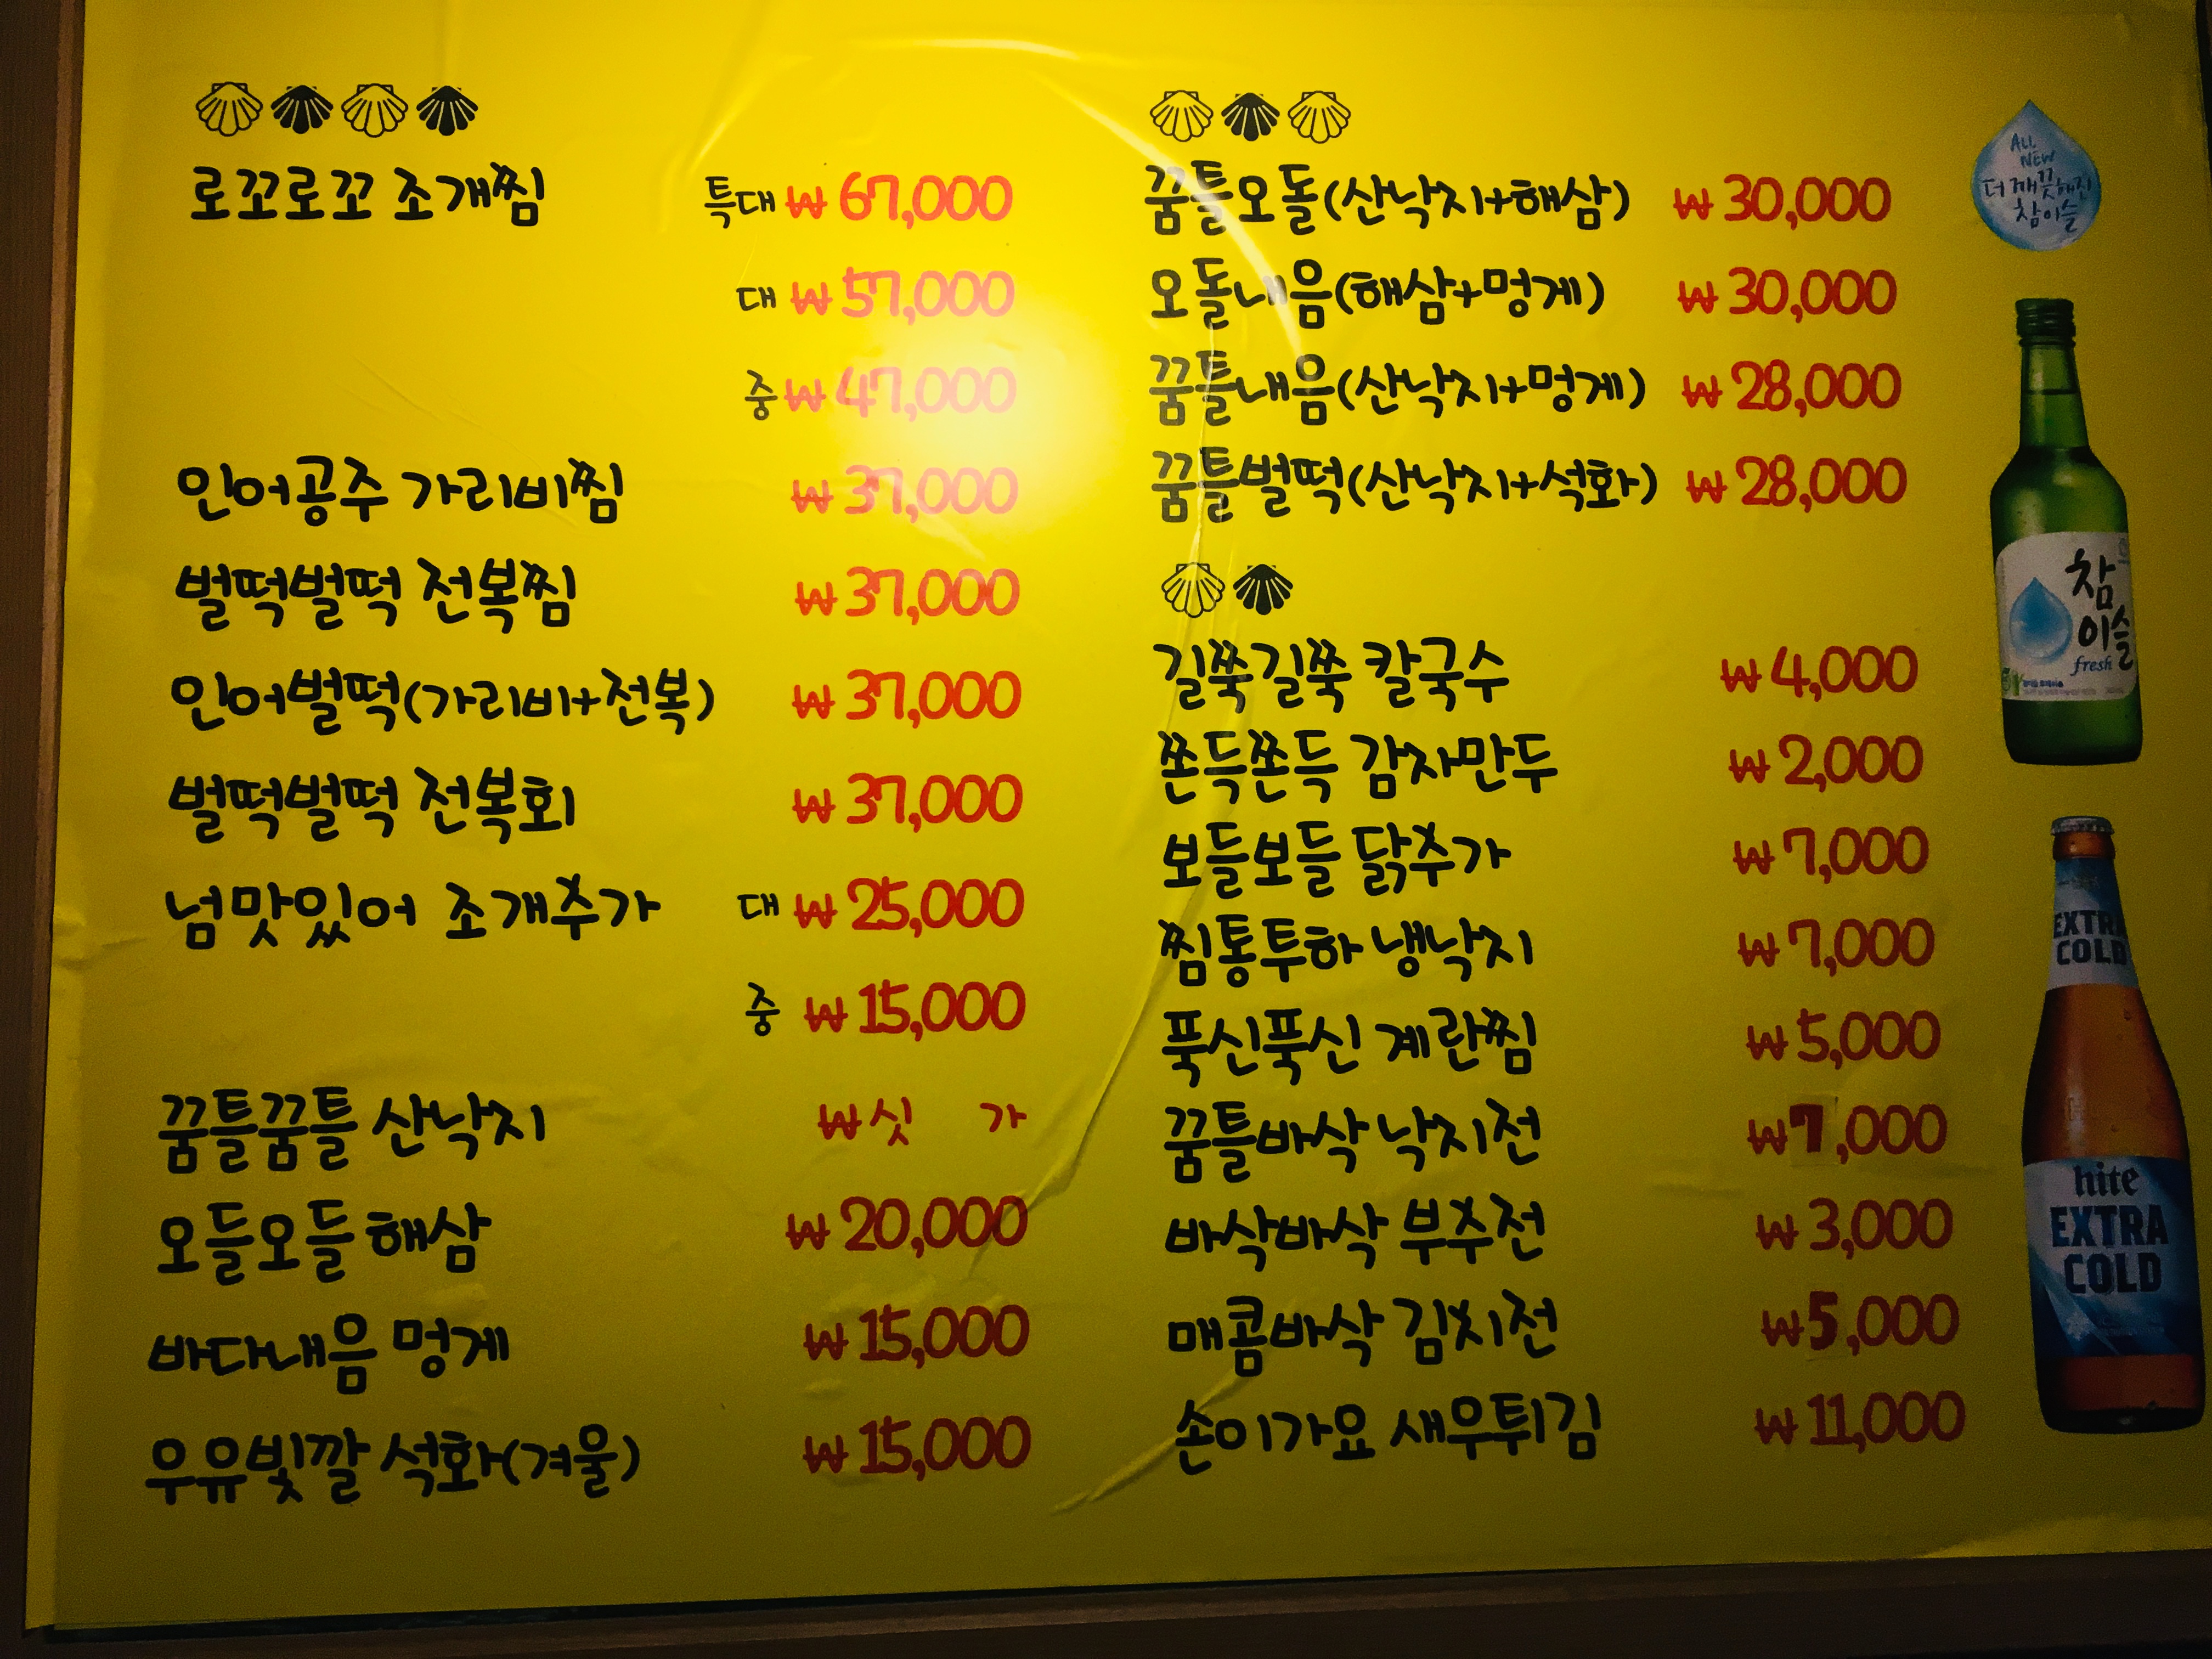 로꼬로꼬 조개찜 특대 ₩67,000
대 ₩57,000
중 ₩47,000
인어공주 가리비찜 ₩37,000
벌떡벌떡 전복찜 ₩37,000
인어벌떡(가리비+전복) ₩37,000
벌떡벌떡 전복회 ₩37,000
넘맛있어 조개추가 대 ₩25,000
중 ₩15,000
꿈틀꿈틀 산낙지 ₩싯 가
오들오들 해삼 ₩20,000
바다내음 멍게 ₩15,000
우유빛깔 석화(겨울) ₩15,000
꿈틀오돌(산낙지+해삼) ₩30,000
오돌내음(해삼+멍게) ₩30,000
꿈틀내음(산낙지+멍게) ₩28,000
꿈틀벌떡(산낙지+석화) ₩28,000
길쭉길쭉 칼국수 ₩4,000
쫀득쫀득 감자만두 ₩2,000
보들보들 닭추가 ₩7,000
찜통투하 냉낙지 ₩7,000
푹신푹신 계란찜 ₩5,000
꿈틀바삭 낙지전 ₩7,000
바삭바삭 부추전 ₩3,000
매콤바삭 김치전 ₩5,000
손이가요 새우튀김 ₩11,000
ALL
NEW
더 깨끗해진
참이슬
참
이슬
fresh
EXTRA
COLD
hite
EXTRA
COLD